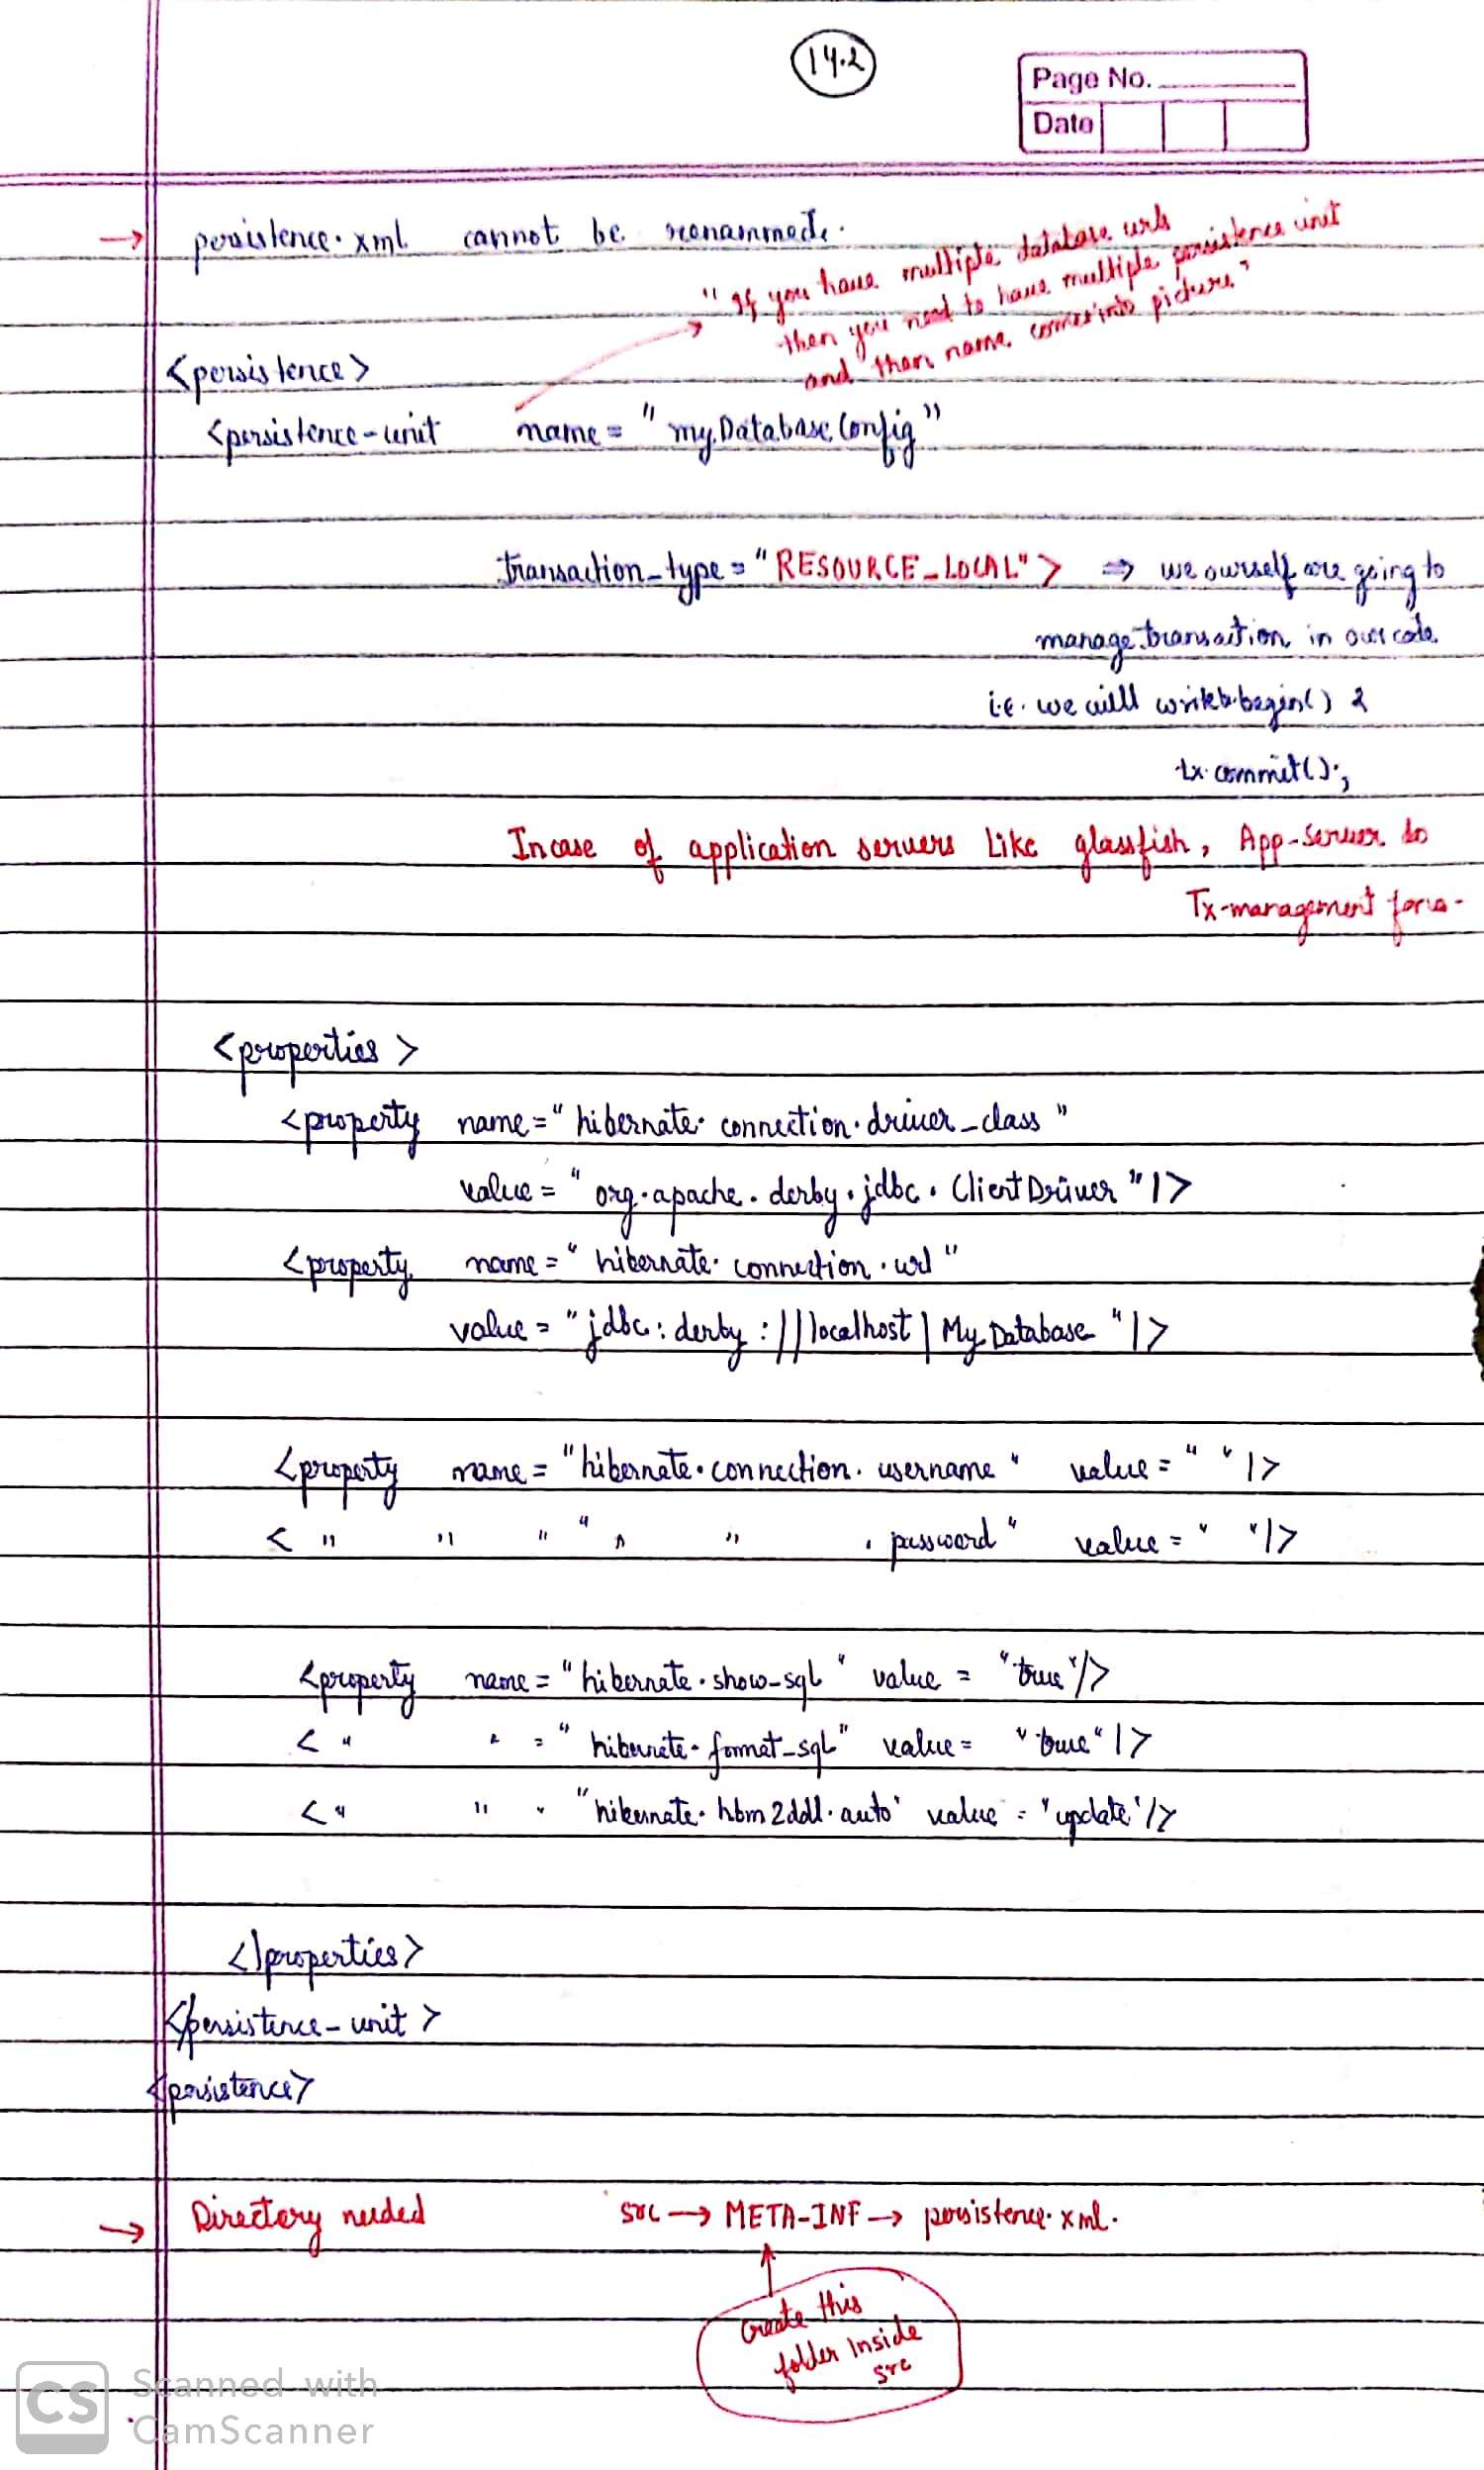 14.2
Page No.
Date
→ persistence.xml cannot be renammed.
"If you have multiple database urls
then you need to have multiple persistence unit
and then name comes into picture"
<persistence>
<persistence-unit name = "myDatabaseConfig"
transaction_type = "RESOURCE_LOCAL"> ⇒ we ourself are going to
manage transaction in our code
i.e. we will write begin() &
tx.commit();
Incase of application servers Like glassfish, App-server do
Tx-management for us-
<properties>
<property name="hibernate.connection.driver_class"
value = "org.apache.derby.jdbc.ClientDriver"/>
<property name="hibernate.connection.url"
value = "jdbc:derby://localhost/MyDatabase"/>
<property name = "hibernate.connection.username" value = " "/>
< " " " " " " .password" value = " "/>
<property name = "hibernate.show_sql" value = "true"/>
< " " = "hibernate.format_sql" value = "true"/>
< " " " "hibernate.hbm2ddl.auto" value = "update"/>
</properties>
</persistence-unit>
</persistence>
→ Directory needed src → META-INF → persistence.xml.
Create this
folder Inside
src
CS Scanned with
CamScanner